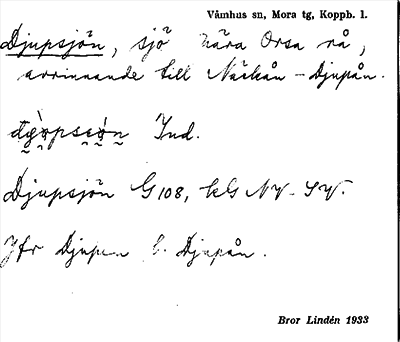 Våmhus sn, Mora tg, Koppb. l.
Djupsjön, sjö nära Orsa rå,
avrinnande till Näckån - Djupån.
Ind.
Djupsjön G 108, kG NV - SV.
Jfr Djupen b. Djupån.
Bror Lindén 1933